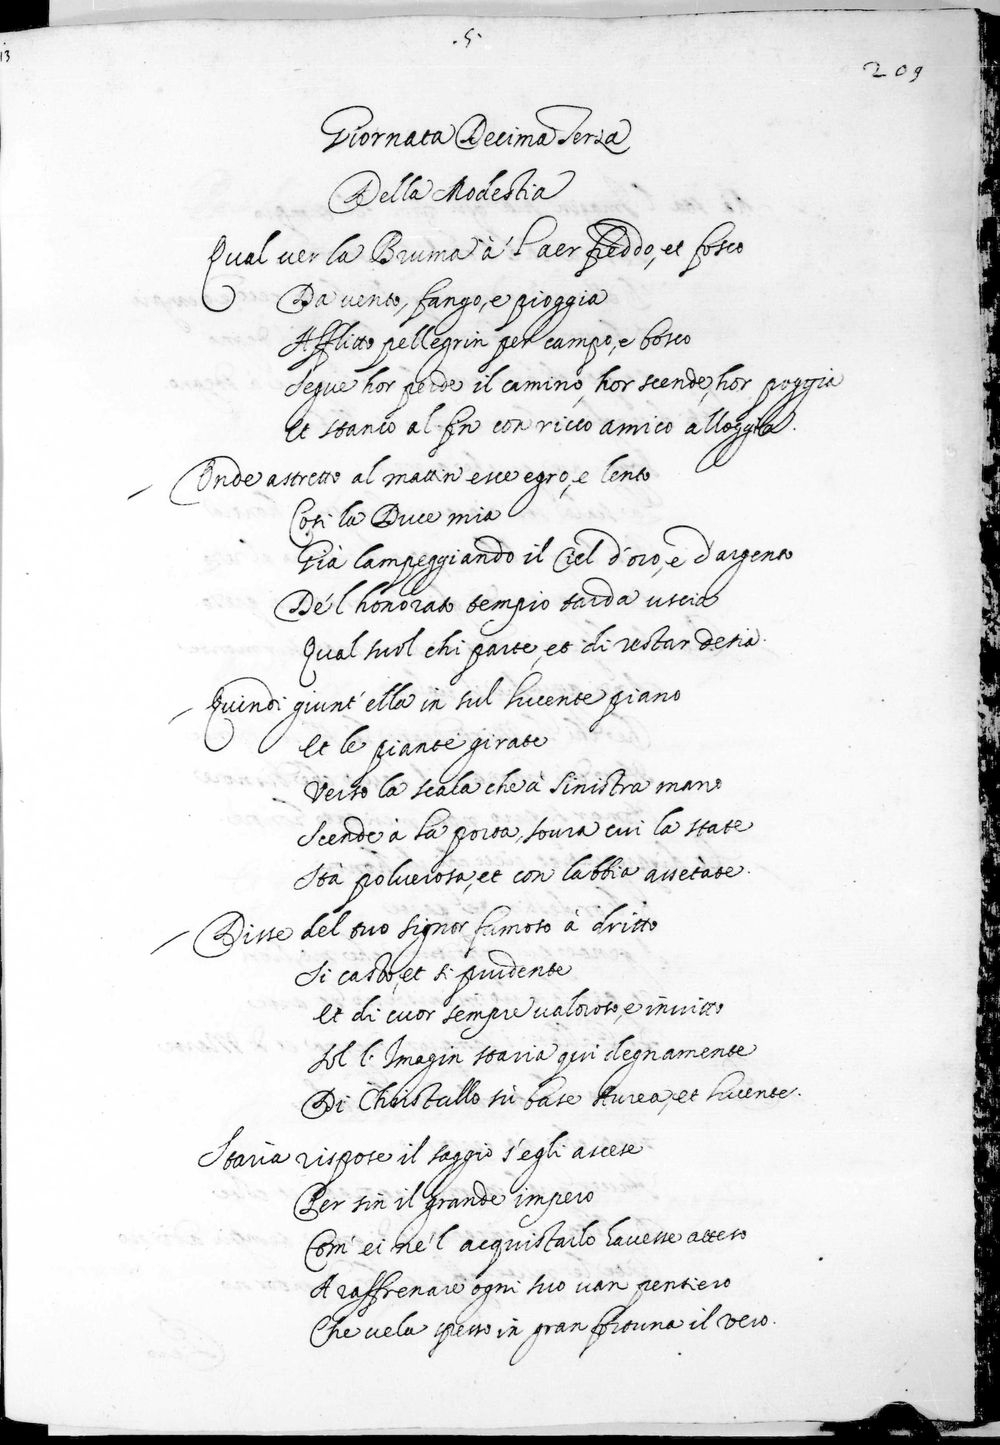 .5.
13
209
Giornata Decima Terza
Della Modestia
Qual uer la Bruma à l'aer freddo, et fosco
Da uento, fango, e pioggia
Afflitto pellegrin per campo, e bosco
Segue hor perde il camino, hor scende, hor poggia
Et stanco al fin con ricco amico alloggia.
Onde astretto al mattin esce egro, e lento
Cosi la Duce mia
Già lampeggiando il Ciel d'oro, e d'argento
De'l honorato tempio tarda uscia
Qual suol chi parte, et di restar desia.
Quindi giunt' ella in sul lucente piano
Et le piante girate
Verso la scala che à sinistra mano
Scende à la porta, soura cui la state
Stà poluerosa, et con labbia assetate.
Disse del tuo signor famoso à dritto
Si casto, et si prudente
Et di cuor sempre ualoroso, e inuitto
Sol l'Imagin staria qui degnamente
Di Christallo sù base Aurea, et lucente.
Staria rispose il saggio s'egli ascese
Per sin il grande impero
Com' ei ne'l acquistarlo hauesse atteso
A raffrenare ogni suo uan pensiero
Che uela spesso in gran fortuna il vero.